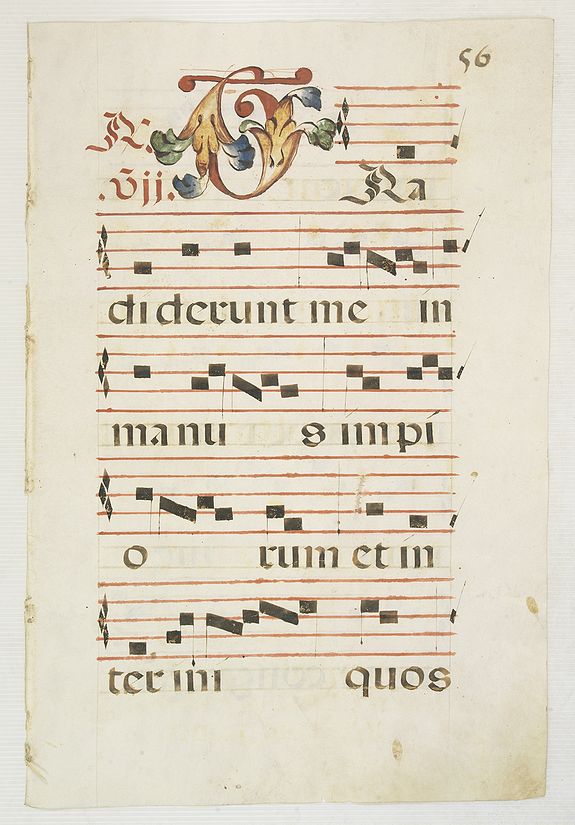 56
R:
.Vij. TRa
diderunt me in
manu s impi
o rum et in
ter ini quos